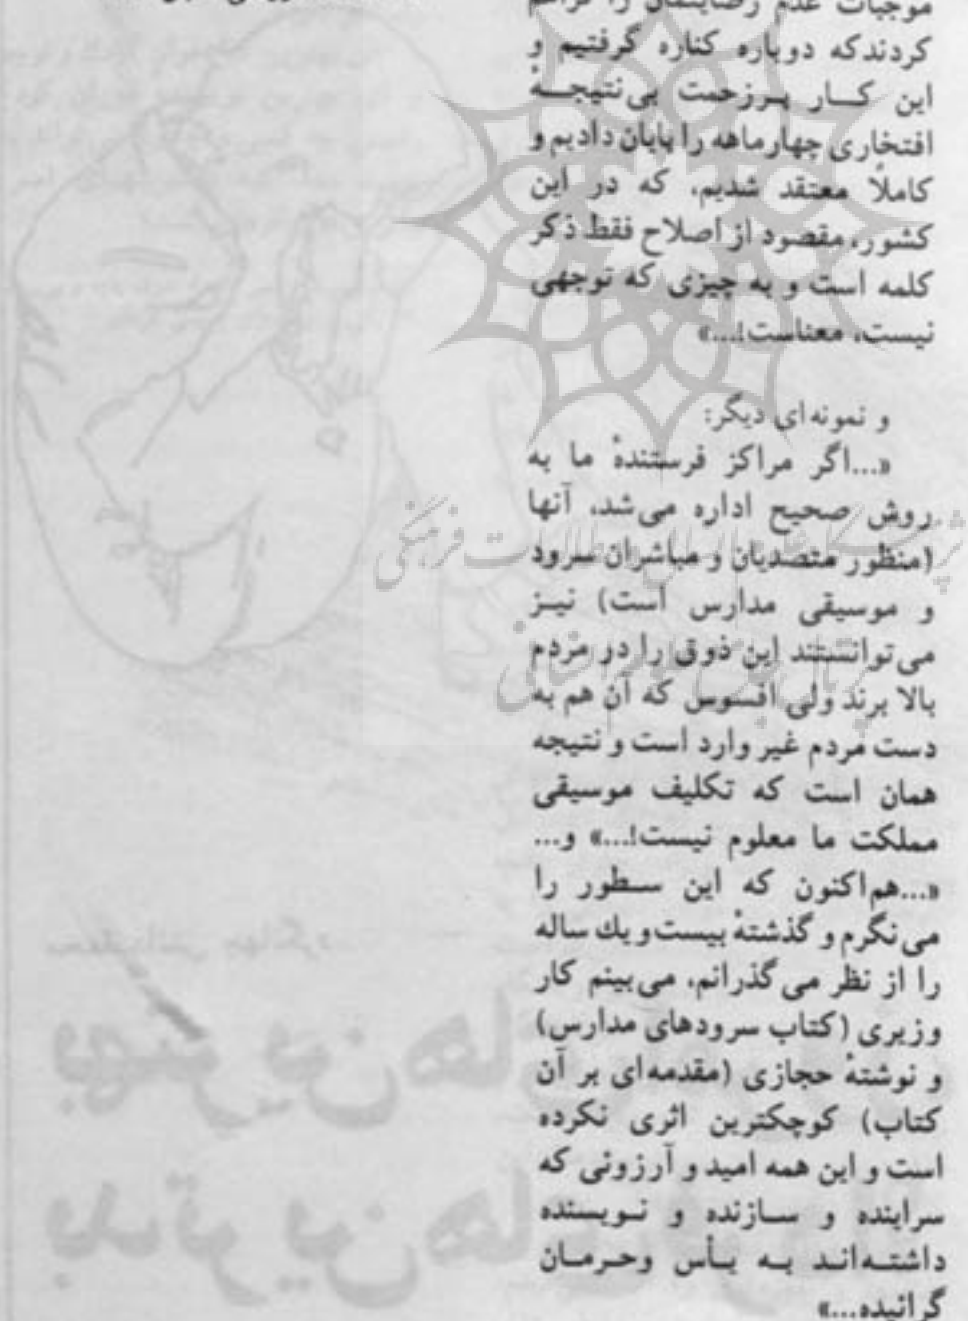 موجبات عدم رضایتمان را فراهم
کردندکه دوباره کناره گرفتیم و
این کار پرزحمت بی‌نتیجهٔ
افتخاری چهارماهه را پایان دادیم و
کاملاً معتقد شدیم، که در این
کشور، مقصود از اصلاح فقط ذکر
کلمه است و به چیزی که توجهی
نیست، معناست!...»
و نمونه‌ای دیگر:
«...اگر مراکز فرستندهٔ ما به
روش صحیح اداره می‌شد، آنها
(منظور متصدیان و مباشران سرود
و موسیقی مدارس است) نیز
می‌توانستند این ذوق را در مردم
بالا برند ولی افسوس که آن هم به
دست مردم غیر وارد است و نتیجه
همان است که تکلیف موسیقی
مملکت ما معلوم نیست!...» و...
«...هم‌اکنون که این سطور را
می‌نگرم و گذشتهٔ بیست‌ویك ساله
را از نظر می‌گذرانم، می‌بینم کار
وزیری (کتاب سرودهای مدارس)
و نوشتهٔ حجازی (مقدمه‌ای بر آن
کتاب) کوچکترین اثری نکرده
است و این همه امید و آرزوئی که
سراینده و سازنده و نویسنده
داشته‌اند به یأس وحرمان
گرائیده...»
پژوهشگاه علوم انسانی و مطالعات فرهنگی
پرتال جامع علوم انسانی